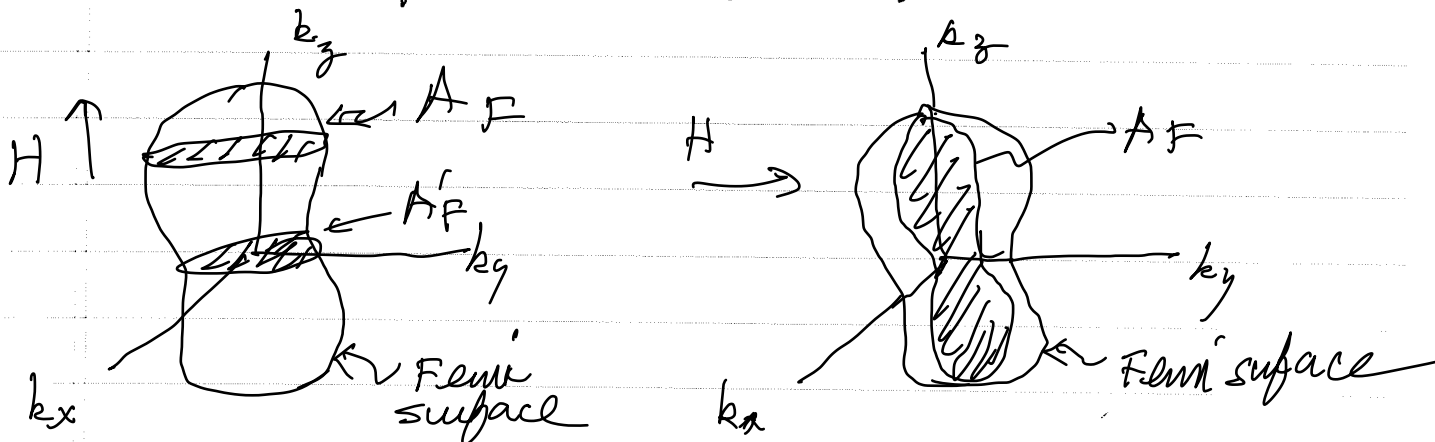 k_z
H
A_F
A'_F
k_y
k_x
Fermi
surface
k_z
H
A_F
k_y
k_x
Fermi suface